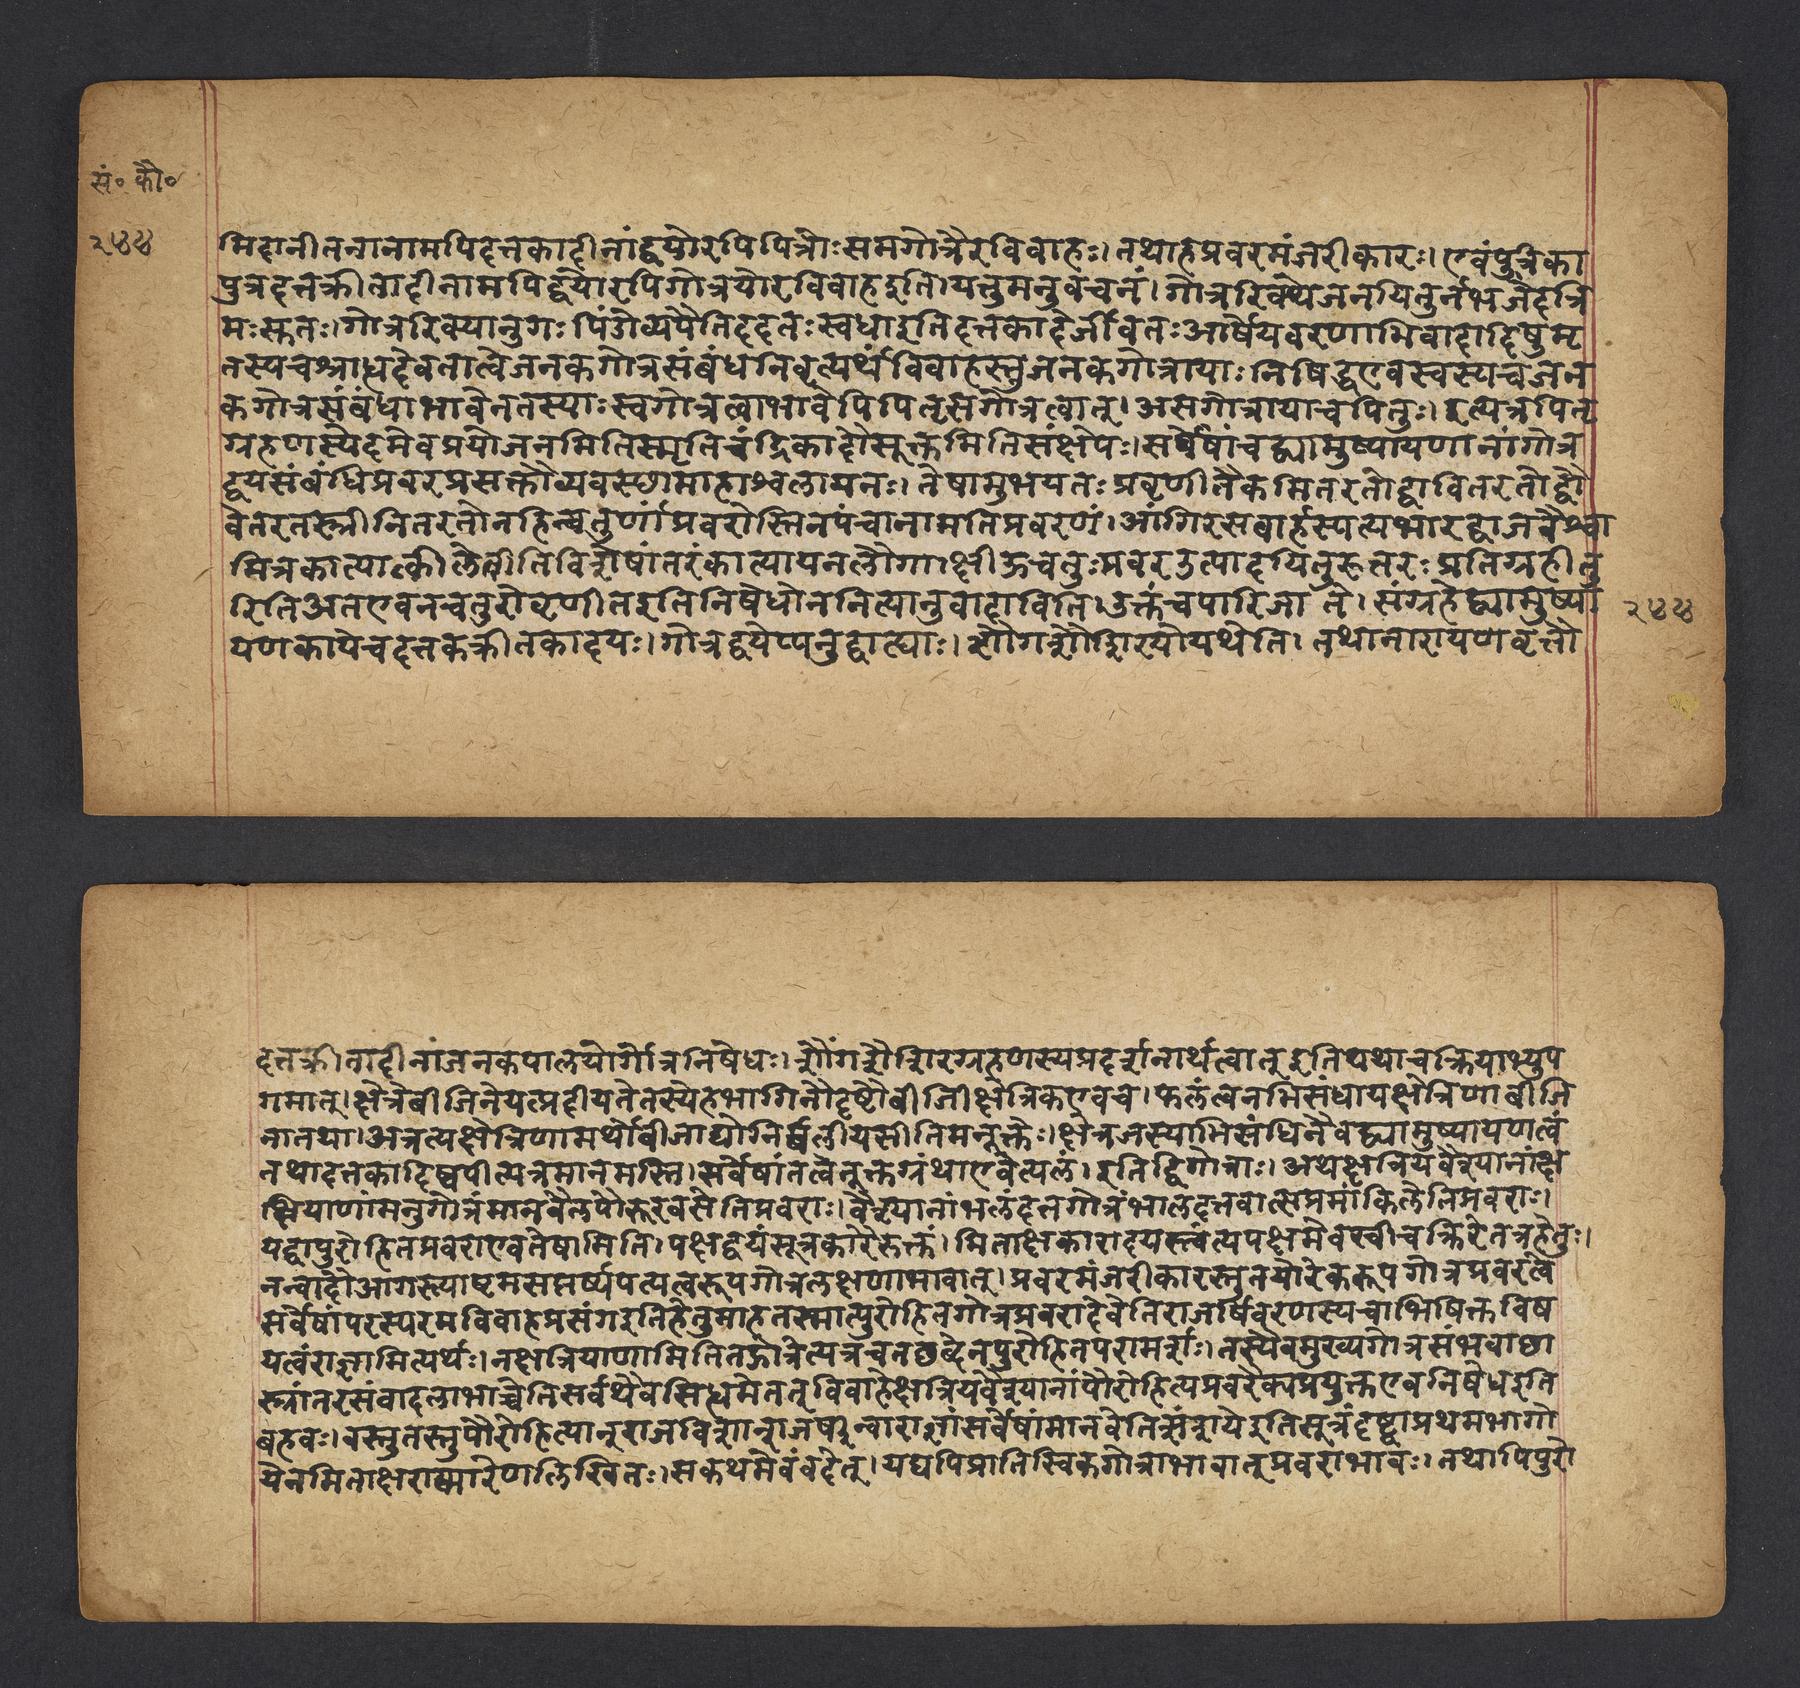 सं॰ कौ॰
२५५
मिदानींतनानामपिदत्तकादीनांद्वयोरपिपित्रोःसमगोत्रैरविवाहः। तथाहप्रवरमंजरीकारः। एवंपुत्रिका
पुत्रदत्तक्रीतादीनामपिद्वयोरपिगोत्रयोरविवाहइति। यत्तुमनुवचनं। गोत्ररिक्थेजनयितुर्नभजेदत्रि
मःसुतः। गोत्ररिक्थानुगःपिंडोव्यपैतिददतःस्वधाइतिदत्तकादेर्जीवतःआर्षेयवरणाभिवादादिषुमृ
तस्यचश्राद्धदेवतात्वेजनकगोत्रसंबंधनिवृत्यर्थं विवाहस्तुजनकगोत्रायाःनिषिद्धएवस्वस्यचजन
कगोत्रसंबंधाभावेनतस्याःस्वगोत्रत्वाभावेपिपितृसगोत्रत्वात्। असगोत्रायाचपितुः। इत्यत्रपितृ
ग्रहणस्यैदमेवप्रयोजनमितिस्मृतिचंद्रिकादौसूक्तमितिसंक्षेपः। सर्वेषांचद्व्यामुष्यायणानांगोत्र
द्वयसंबंधिप्रवरप्रसक्तौव्यवस्छामाहाश्वलायनः। तेषामुभयतः प्रवृणीतैकमितरतोद्वावितरतोद्वौ
वेतरतस्त्रीनितरतोनहिचतुर्णांप्रवरोस्तिनपंचानामतिप्रवरणं। आंगिरसबार्हस्पत्यभारद्वाजवैश्वा
मित्रकात्यात्कीलेतीतिविशेषांतरंकात्यायनलौगाक्षीऊचतुःप्रवरउत्पादयितुरुत्तरःप्रतिग्रहीतु
रितिअतएवनचतुरोवृणीतइतिनिषेधोननित्यानुवादावितिउक्तंचपारिजाते। संग्रहेद्व्यामुष्या
२५५
यणकायेचदत्तकक्रीतकादयः। गोत्रद्वयेप्यनुद्वाह्याः। शौंगशैशिरयोर्यथेति। तथानारायणवृत्तौ
दत्तक्रीतादीनांजनकपालयोर्गोत्रनिषेधः। शौंगशैशिरग्रहणस्यप्रदर्शनार्थत्वात्इतियथाचक्रियाभ्युप
गमात्। क्षेत्रेबीजिनेयत्प्रदीयतेतस्येहभागिनौदृष्टौबीजीक्षेत्रिकएवच। फलंत्वनभिसंधायक्षेत्रिणांबीजि
नांतथा। अत्रत्यक्षेत्रिणामर्थोबीजाद्योनिर्बलीयसीतिमनूक्तेः। क्षेत्रजस्याभिसंधिनैवद्व्यामुष्यायणत्वं
नथादत्तकादिष्वपीत्यत्रमानमस्ति। सर्वेषांतत्त्वेतूक्तग्रंथाएवेत्यलं। इतिद्विगोत्राः। अथक्षत्रियवैश्यानांक्ष
त्रियाणांमनुगोत्रंमानवैलपौरूरवसेतिप्रवराः। वैश्यानांभलंदनगोत्रंभालंदनवात्सप्रमांकिलेतिप्रवराः।
यद्वापुरोहितप्रवराएवतेषामिति। पक्षद्वयंसूत्रकारैरुक्तं। मिताक्षराकारादयस्त्वंत्यपक्षमेवस्वीचक्रिरेतत्रहेतुः।
नन्वादौआगस्त्याष्टमसप्तर्ष्यपत्यत्वरूपगोत्रलक्षणाभावात्। प्रवरमंजरीकारस्तुतयोरेकरूपगोत्रप्रवरत्वे
सर्वेषांपरस्परमविवाहप्रसंगइतिहेतुमाहतस्मात्पुरोहितगोत्रप्रवरादेवेतिराजर्षिवरणस्यचाभिषिक्तविष
यत्वंराज्ञामित्यर्थः। नक्षत्रियाणामितितद्गोत्रेत्यत्रचतछब्देनपुरोहितपरामर्शः। तस्यैवमुख्यगोत्रसंभवाछा
स्त्रांतरसंवादलाभाच्चेतिसर्वथैवसिध्दमेतत्विवाहेक्षत्रियवैश्यानांपौरोहित्यप्रवरैक्यप्रयुक्तएवनिषेधइति
बहवः। वस्तुतस्तुपौरोहित्यान्राजविशान्राजर्षीन्वाराज्ञांसर्वेषांमानवेतिसंशयेइतिसूत्रंदृष्ट्वाप्रथमभागो
येनमिताक्षराकारेणलिखितः। सकथमेवंवदेत्। यद्यपिप्रातिस्विकगोत्राभावात्प्रवराभावः। तथापिपुरो